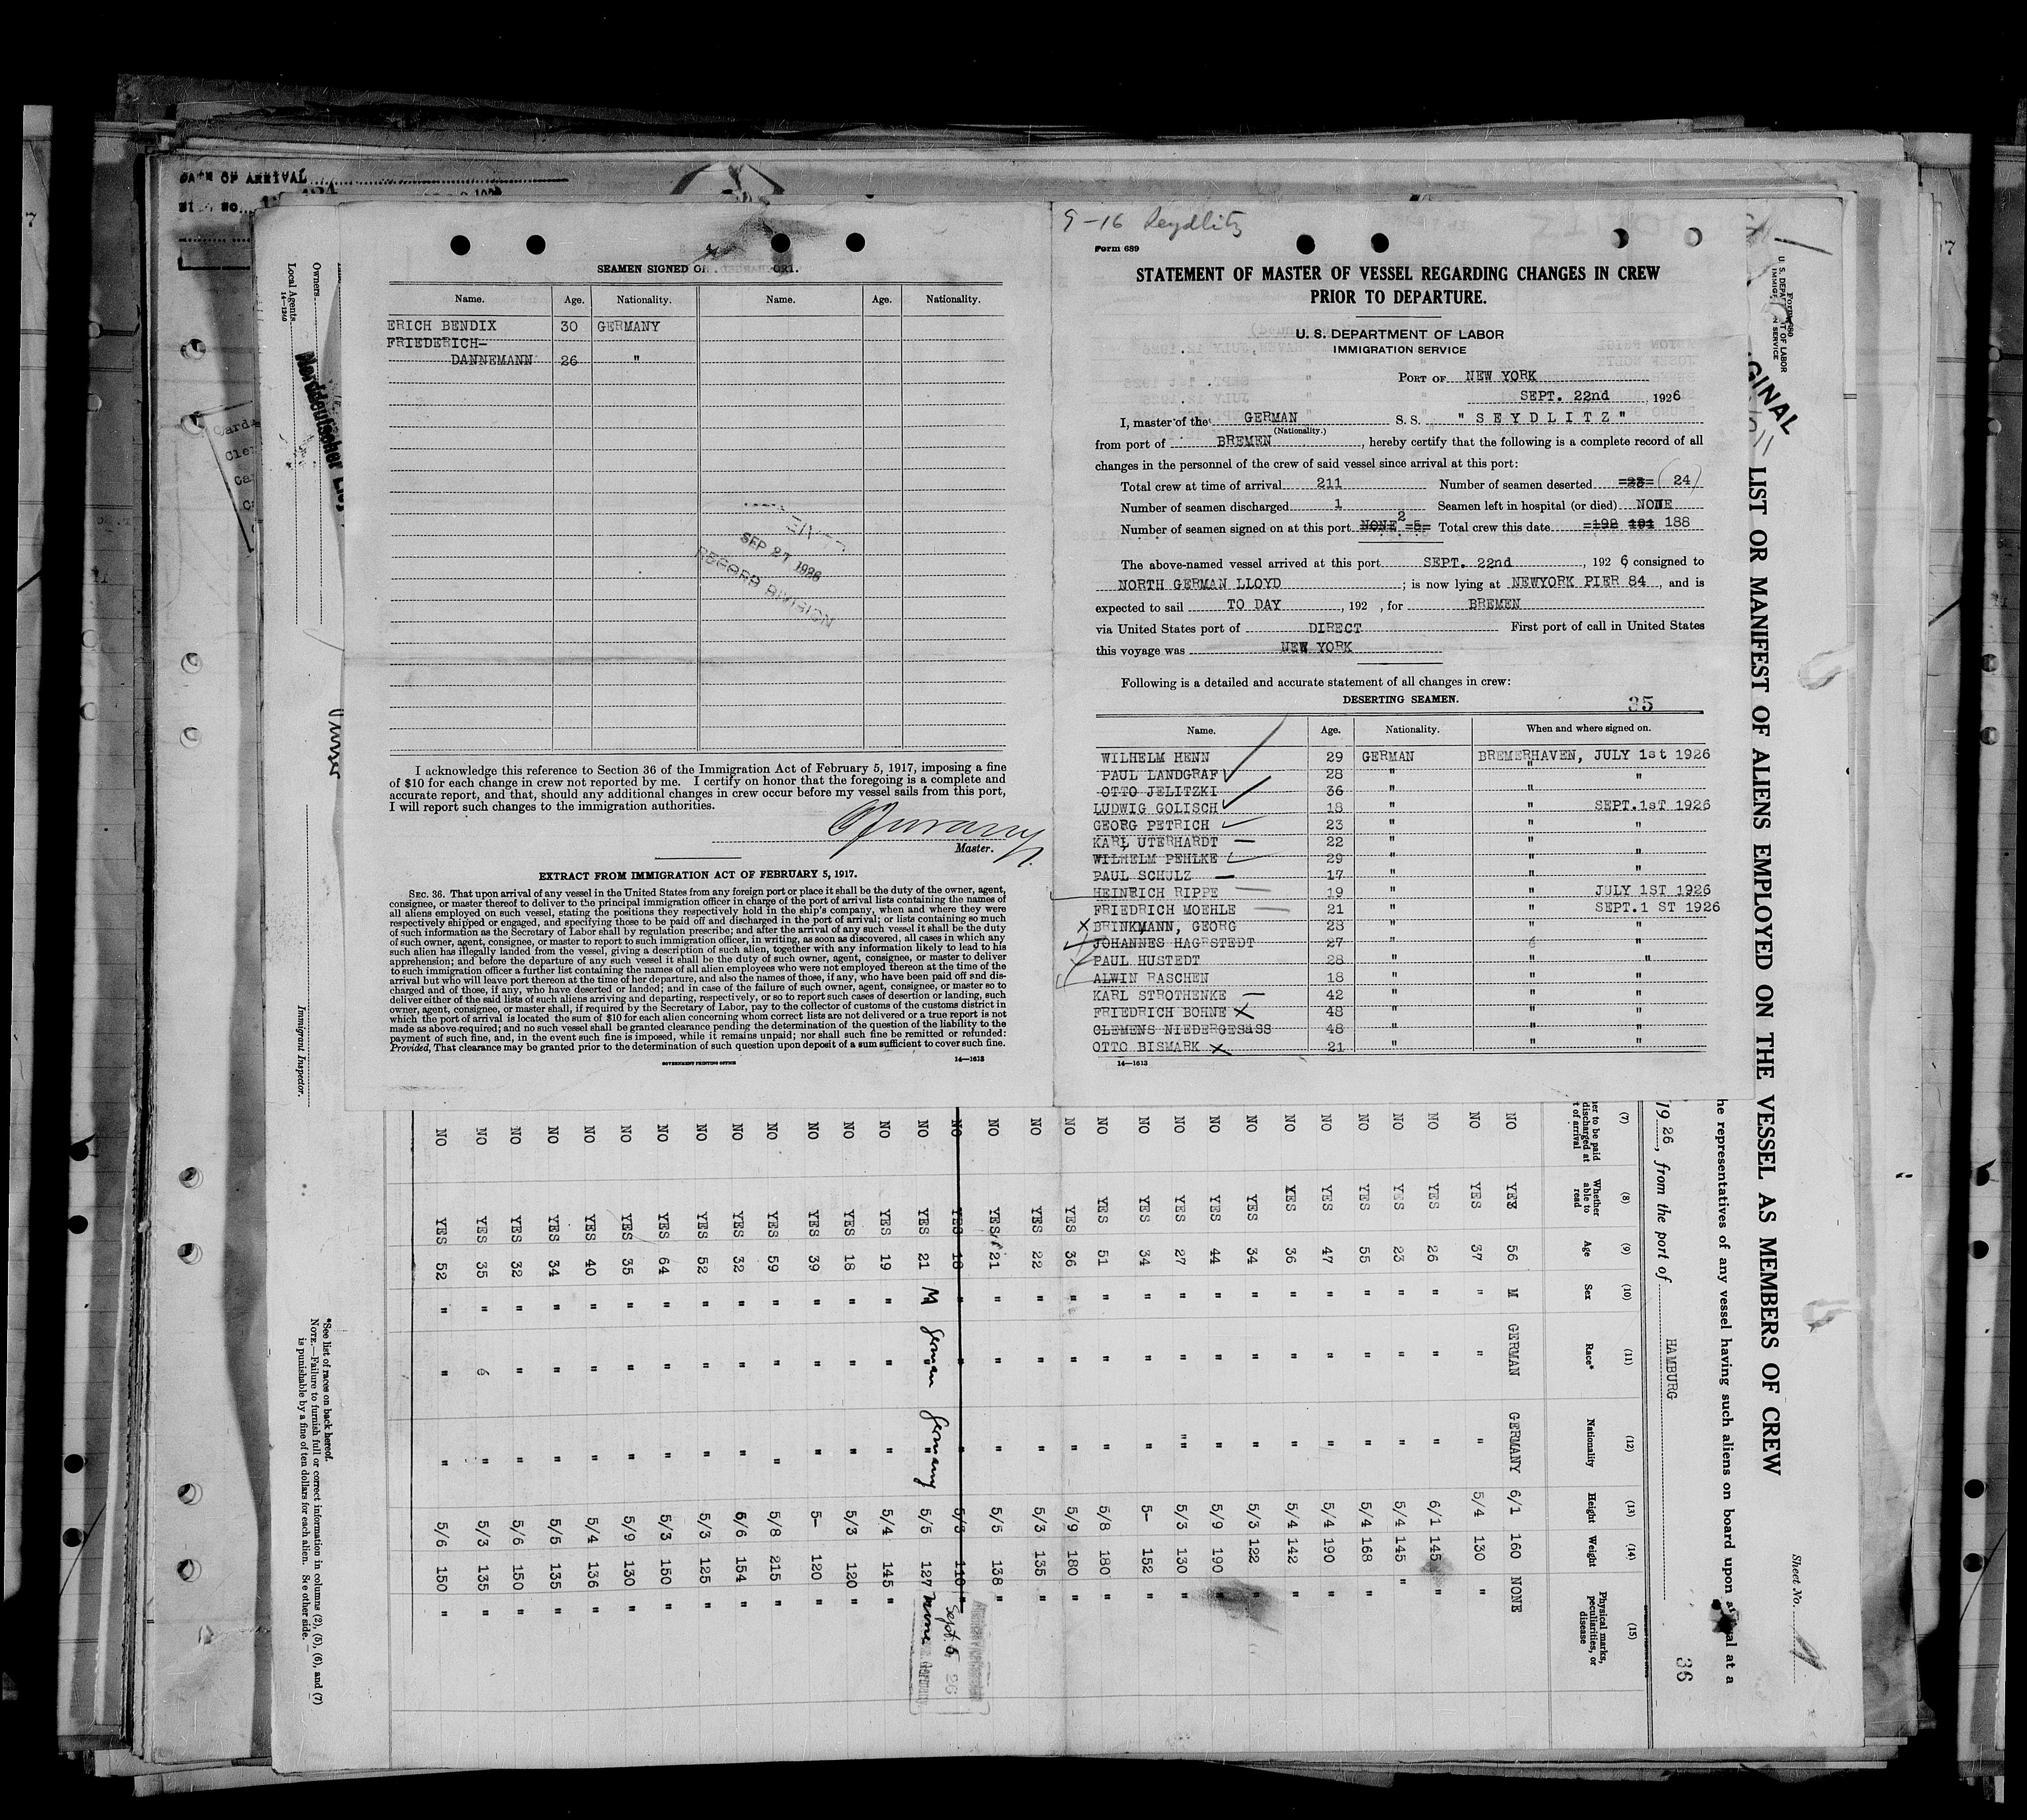 DATE OF ARRIVAL
SEAMEN SIGNED
Name. Age. Nationality. Name. Age. Nationality.
ERICH BENDIX 30 GERMANY
FRIEDERICH-
DANNEMANN 26 "
SEP 27 1926
RECORD DIVISION
I acknowledge this reference to Section 36 of the Immigration Act of February 5, 1917, imposing a fine
of $10 for each change in crew not reported by me. I certify on honor that the foregoing is a complete and
accurate report, and that, should any additional changes in crew occur before my vessel sails from this port,
I will report such changes to the immigration authorities.
Master.
EXTRACT FROM IMMIGRATION ACT OF FEBRUARY 5, 1917.
SEC. 36. That upon arrival of any vessel in the United States from any foreign port or place it shall be the duty of the owner, agent,
consignee, or master thereof to deliver to the principal immigration officer in charge of the port of arrival lists containing the names of
all aliens employed on such vessel, stating the positions they respectively hold in the ship's company, when and where they were
respectively shipped or engaged, and specifying those to be paid off and discharged in the port of arrival; or lists containing so much
of such information as the Secretary of Labor shall by regulation prescribe; and after the arrival of any such vessel it shall be the duty
of such owner, agent, consignee, or master to report to such immigration officer, in writing, as soon as discovered, all cases in which any
such alien has illegally landed from the vessel, giving a description of such alien, together with any information likely to lead to his
apprehension; and before the departure of any such vessel it shall be the duty of such owner, agent, consignee, or master to deliver
to such immigration officer a further list containing the names of all alien employees who were not employed thereon at the time of the
arrival but who will leave port thereon at the time of her departure, and also the names of those, if any, who have been paid off and dis-
charged and of those, if any, who have deserted or landed; and in case of the failure of such owner, agent, consignee, or master so to
deliver either of the said lists of such aliens arriving and departing, respectively, or so to report such cases of desertion or landing, such
owner, agent, consignee, or master shall, if required by the Secretary of Labor, pay to the collector of customs of the customs district in
which the port of arrival is located the sum of $10 for each alien concerning whom correct lists are not delivered or a true report is not
made as above required; and no such vessel shall be granted clearance pending the determination of the question of the liability to the
payment of such fine, and, in the event such fine is imposed, while it remains unpaid; nor shall such fine be remitted or refunded:
Provided, That clearance may be granted prior to the determination of such question upon deposit of a sum sufficient to cover such fine.
GOVERNMENT PRINTING OFFICE
14—1613
9-16 Seydlitz
Form 689
STATEMENT OF MASTER OF VESSEL REGARDING CHANGES IN CREW
PRIOR TO DEPARTURE.
U. S. DEPARTMENT OF LABOR
IMMIGRATION SERVICE
PORT OF NEW YORK
SEPT. 22nd, 1926
I, master of the GERMAN S. S. "SEYDLITZ"
(Nationality.)
from port of BREMEN, hereby certify that the following is a complete record of all
changes in the personnel of the crew of said vessel since arrival at this port:
Total crew at time of arrival 211 Number of seamen deserted =23= (24)
Number of seamen discharged 1 Seamen left in hospital (or died) NONE
Number of seamen signed on at this port NONE 2 =5= Total crew this date =192 191 188
The above-named vessel arrived at this port SEPT. 22nd, 1926 consigned to
NORTH GERMAN LLOYD; is now lying at NEWYORK PIER 84, and is
expected to sail TO DAY, 192 , for BREMEN
via United States port of DIRECT First port of call in United States
this voyage was NEW YORK
Following is a detailed and accurate statement of all changes in crew:
DESERTING SEAMEN. 35
Name. Age. Nationality. When and where signed on.
WILHELM HENN 29 GERMAN BREMERHAVEN, JULY 1st 1926
PAUL LANDGRAF 28 " " "
OTTO JELITZKI 36 " " "
LUDWIG GOLISCH 18 " " SEPT.1sT 1926
GEORG PETRICH 23 " " "
KARL UTERHARDT 22 " "
WILHELM PEHLKE 29 " " "
PAUL SCHULZ 17 " " "
HEINRICH RIPPE 19 " " JULY 1ST 1926
FRIEDRICH MOEHLE 21 " " SEPT.1 ST 1926
BRINKMANN, GEORG 23 " " "
JOHANNES HAGRSTEDT 27 " " "
PAUL HUSTEDT 28 " " "
ALWIN RASCHEN 18 " " "
KARL STROTHENKE 42 " " "
FRIEDRICH BOHNE 48 " " "
CLEMENS NIEDERGESaSS 48 " " "
OTTO BISMARK 21 " " "
14—1613
LIST OR MANIFEST OF ALIENS EMPLOYED ON THE VESSEL AS MEMBERS OF CREW
Sheet No.
he representatives of any vessel having such aliens on board upon arrival at a
1926, from the port of HAMBURG
36
(7) (8) (9) (10) (11) (12) (13) (14) (15)
Whether able to read Age Sex Race* Nationality Height Weight Physical marks, peculiarities, or disease
NO YES 56 M GERMAN GERMANY 6/1 160 NONE
NO YES 37 " " " 5/4 130 "
NO YES 26 " " " 6/1 145 "
NO YES 23 " " " 5/4 145 "
NO YES 55 " " " 5/4 168 "
NO YES 47 " " " 5/4 190 "
NO YES 36 " " " 5/4 142 "
NO YES 34 " " " 5/3 122 "
NO YES 44 " " " 5/9 190 "
NO YES 27 " " " 5/3 130 "
NO YES 34 " " " 5- 152 "
NO YES 51 " " " 5/8 180 "
NO YES 36 " " " 5/9 180 "
NO YES 22 " " " 5/3 135 "
NO YES 21 " " " 5/5 138 "
NO YES 18 " " " 5/3 110 "
NO YES 21 M German Germany 5/5 127 None
Sept. 26
NO YES 19 " " " 5/4 145 "
NO YES 18 " " " 5/3 120 "
NO YES 39 " " " 5- 120 "
NO YES 59 " " " 5/8 215 "
NO YES 32 " " " 6/6 154 "
NO YES 52 " " " 5/3 125 "
NO YES 64 " " " 5/3 150 "
NO YES 35 " " " 5/9 130 "
NO YES 40 " " " 5/4 136 "
NO YES 34 " " " 5/5 135 "
NO YES 32 " " " 5/6 150 "
NO YES 35 " 6 " 5/3 135 "
NO YES 52 " " " 5/6 150 "
*See list of races on back hereof.
NOTE.—Failure to furnish full or correct information in columns (2), (5), (6), and (7)
is punishable by a fine of ten dollars for each alien. See other side.
Immigrant Inspector.
Owners
Local Agents
14—1240
Norddeutscher